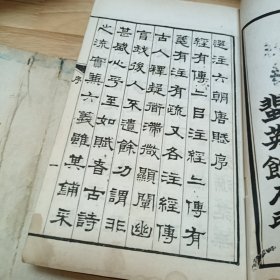 選注六朝唐賦序
經有傳曰注經傳有
有注有疏又各注經傳
古人釋疑滯微顯闡幽
後人遺餘力謂非
甚盛心乎至如賦者古詩
之流實兼六義雖其鋪采
序
蜚英館石印